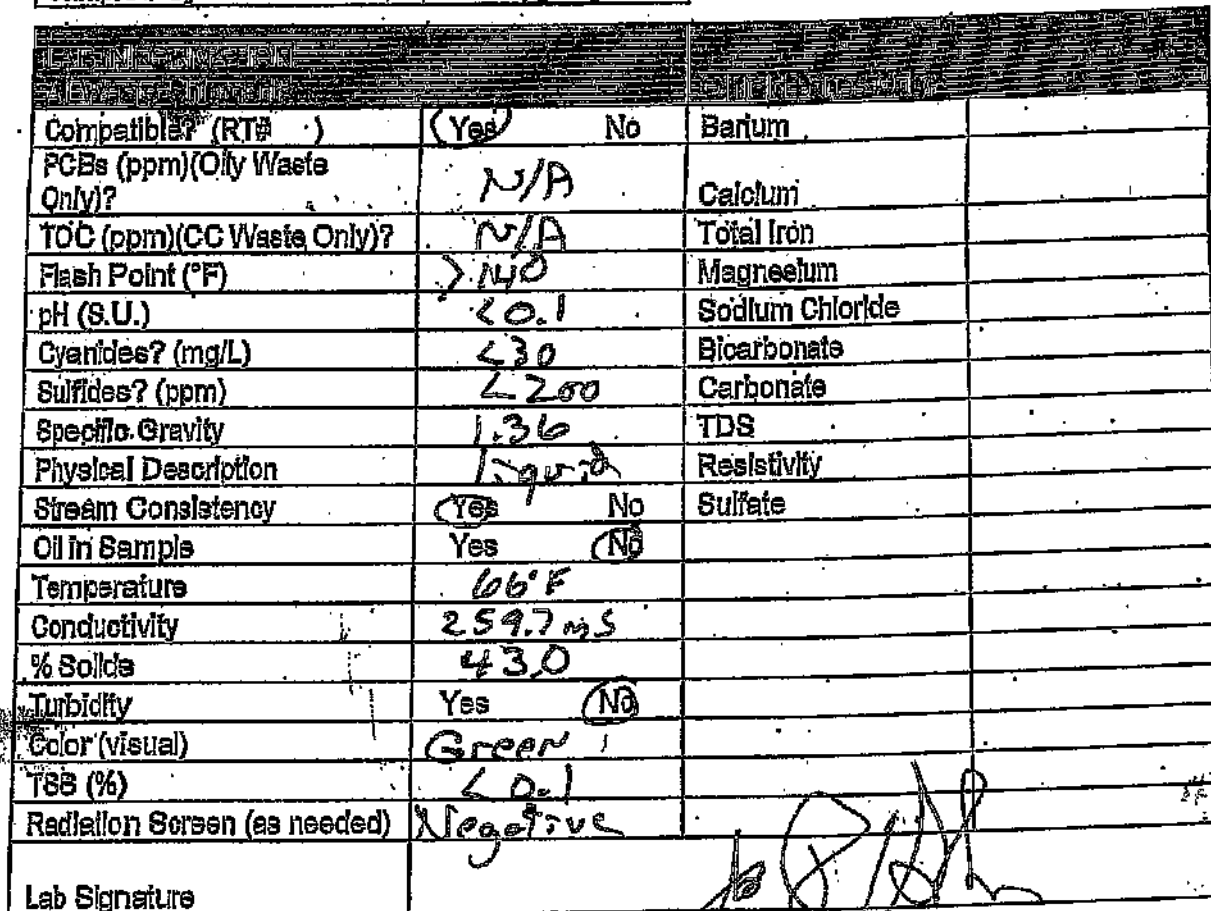 Compatible? (RT# ) Yes No Barium
PCBs (ppm)(Oily Waste
Only)? N/A Calcium
TOC (ppm)(CC Waste Only)? N/A Total Iron
Flash Point (°F) >140 Magnesium
pH (S.U.) <0.1 Sodium Chloride
Cyanides? (mg/L) <30 Bicarbonate
Sulfides? (ppm) <200 Carbonate
Specific Gravity 1.36 TDS
Physical Description liquid Resistivity
Stream Consistency Yes No Sulfate
Oil in Sample Yes No
Temperature 66°F
Conductivity 259.7 mS
% Solids 43.0
Turbidity Yes No
Color (visual) Green
TSS (%) <0.1
Radiation Screen (as needed) Negative
Lab Signature